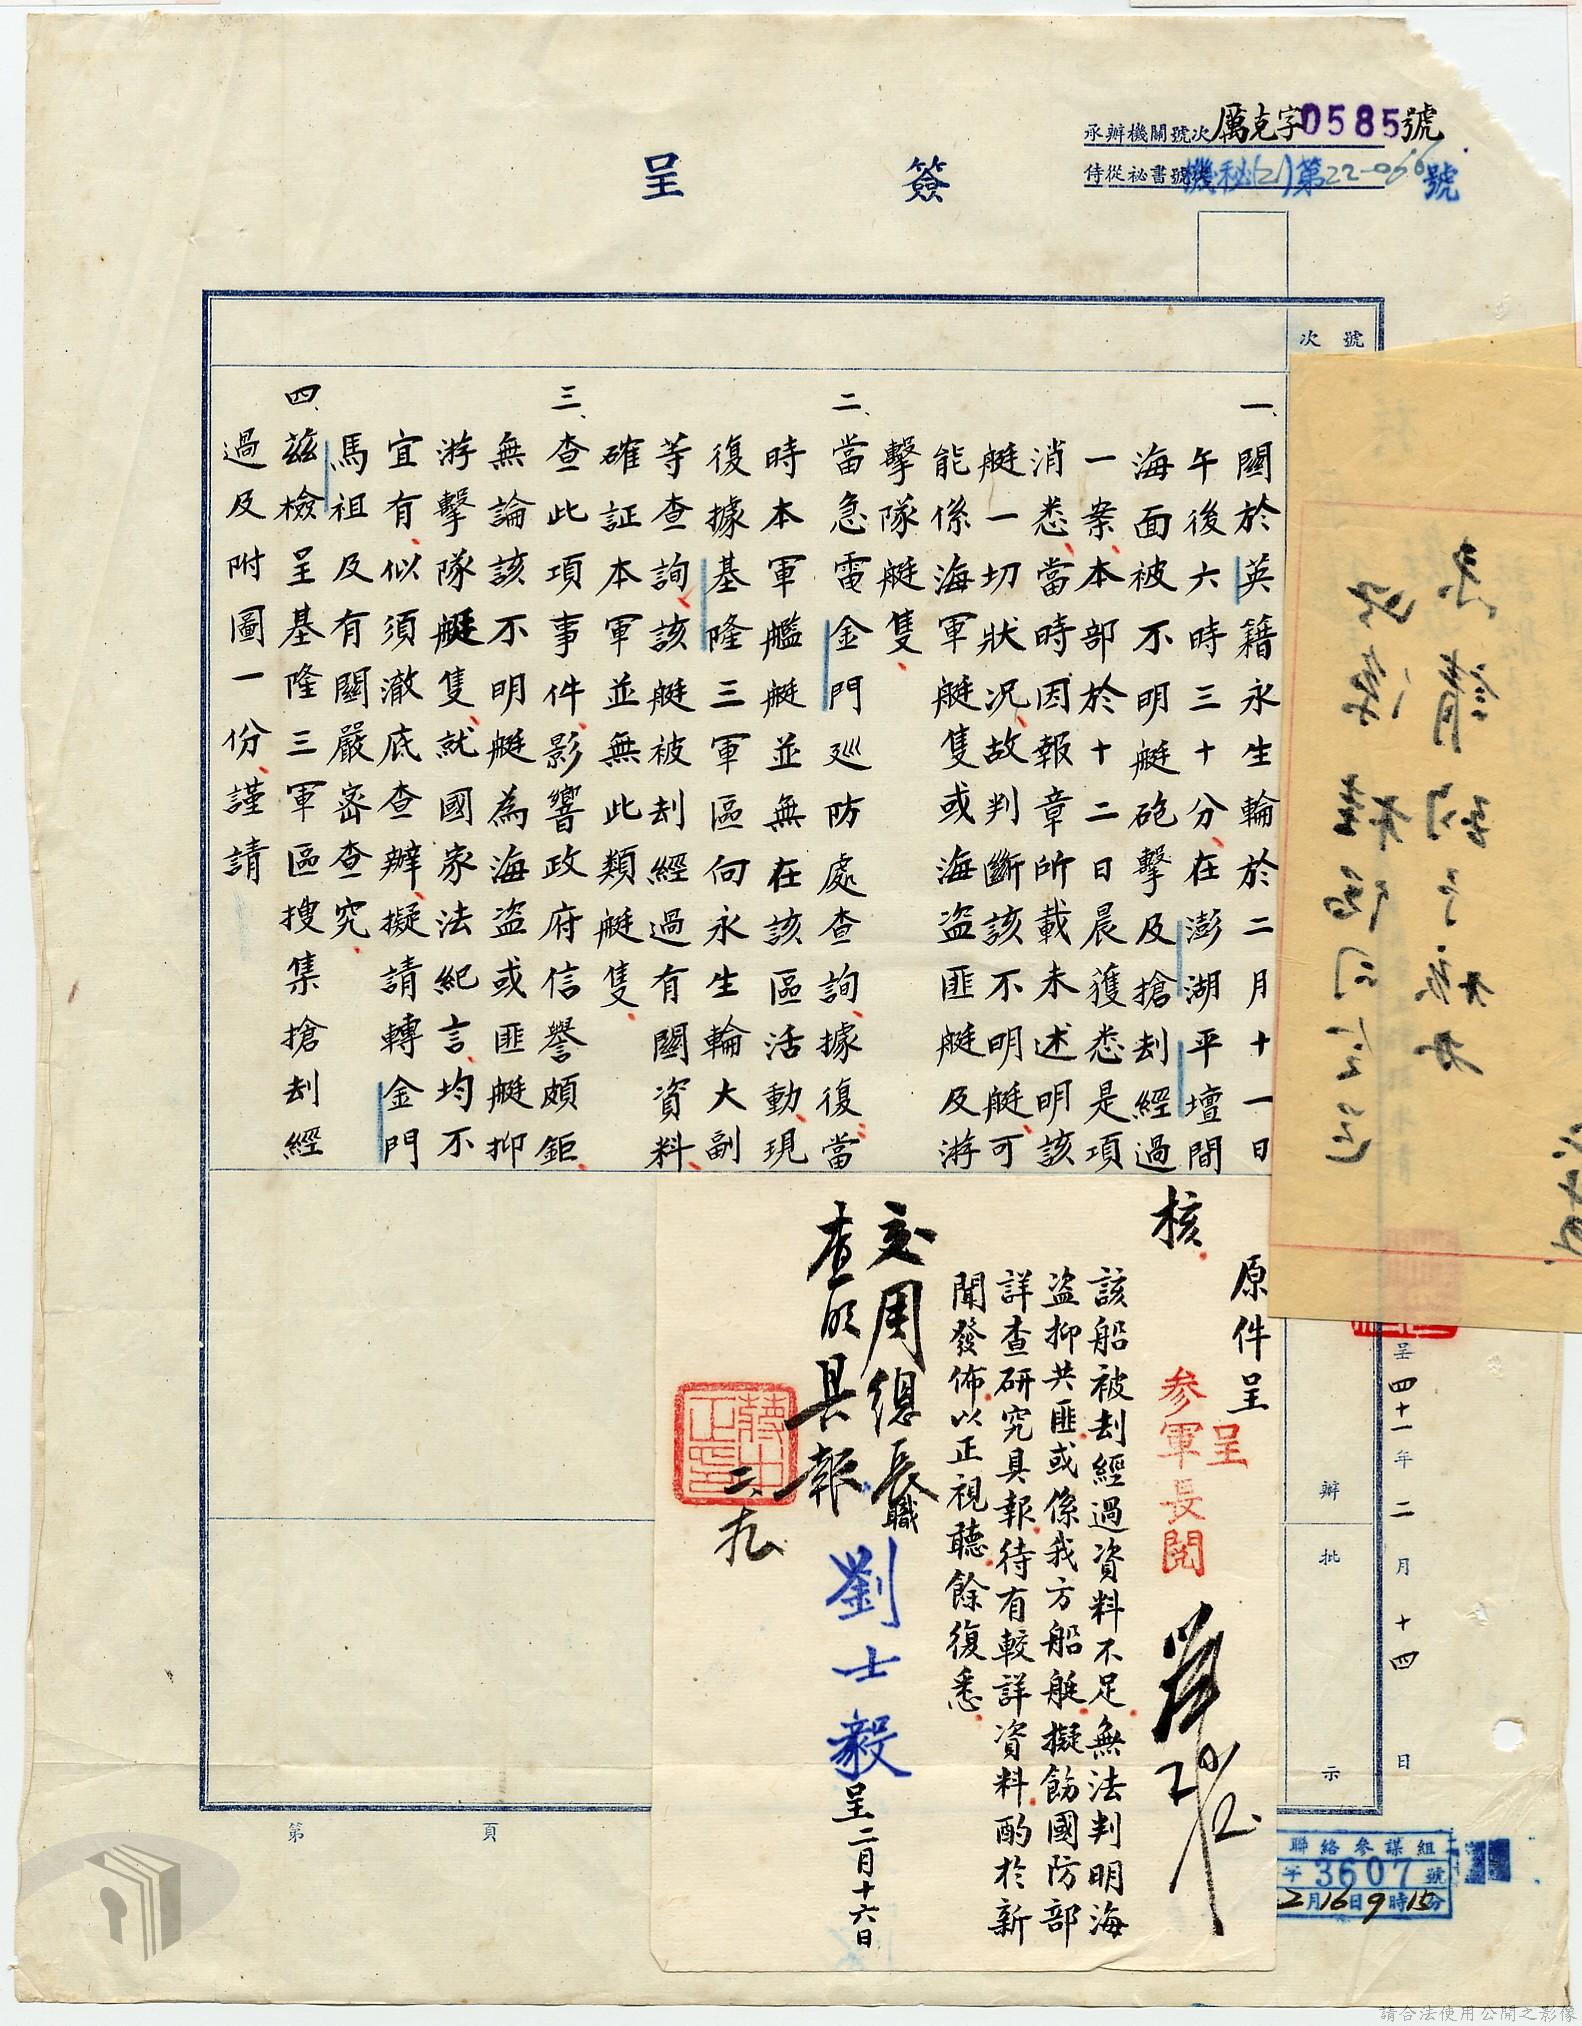 承辦機關號次厲克字0585號
侍從祕書號次機秘(21)第22-066號
簽呈
號次
一、關於英籍永生輪於二月十一日
午後六時三十分、在澎湖平壇間
海面被不明艇砲擊及搶刦經過
一案、本部於十二日晨獲悉是項
消悉、當時因報章所載未述明該
艇一切狀況、故判斷該不明艇、可
能係海軍艇隻或海盜匪艇及游
擊隊艇隻、
二、當急電金門巡防處查詢、據復當
時本軍艦艇並無在該區活動、現
復據基隆三軍區向永生輪大副
等查詢、該艇被刦經過有關資料、
確証本軍並無此類艇隻、
三、查此項事件、影響政府信譽頗鉅、
無論該不明艇為海盜或匪艇抑
游擊隊艇隻、就國家法紀言、均不
宜有、似須澈底查辦、擬請轉金門
馬祖及有關嚴密查究、
四、茲檢呈基隆三軍區搜集搶刦經
過及附圖一份、謹請
核
原件呈
呈
參軍長閱
該船被刦經過資料不足無法判明海
盜抑共匪或係我方船艇擬飭國防部
詳查研究具報待有較詳資料酌於新
聞發佈以正視聽餘復悉
交周總長
查明具報
職劉士毅呈二月十六日
呈四十一年二月十四日
辦
批
示
第 頁
聯絡參謀組
字3607號
2月16日9時15分
請合法使用公開之影像